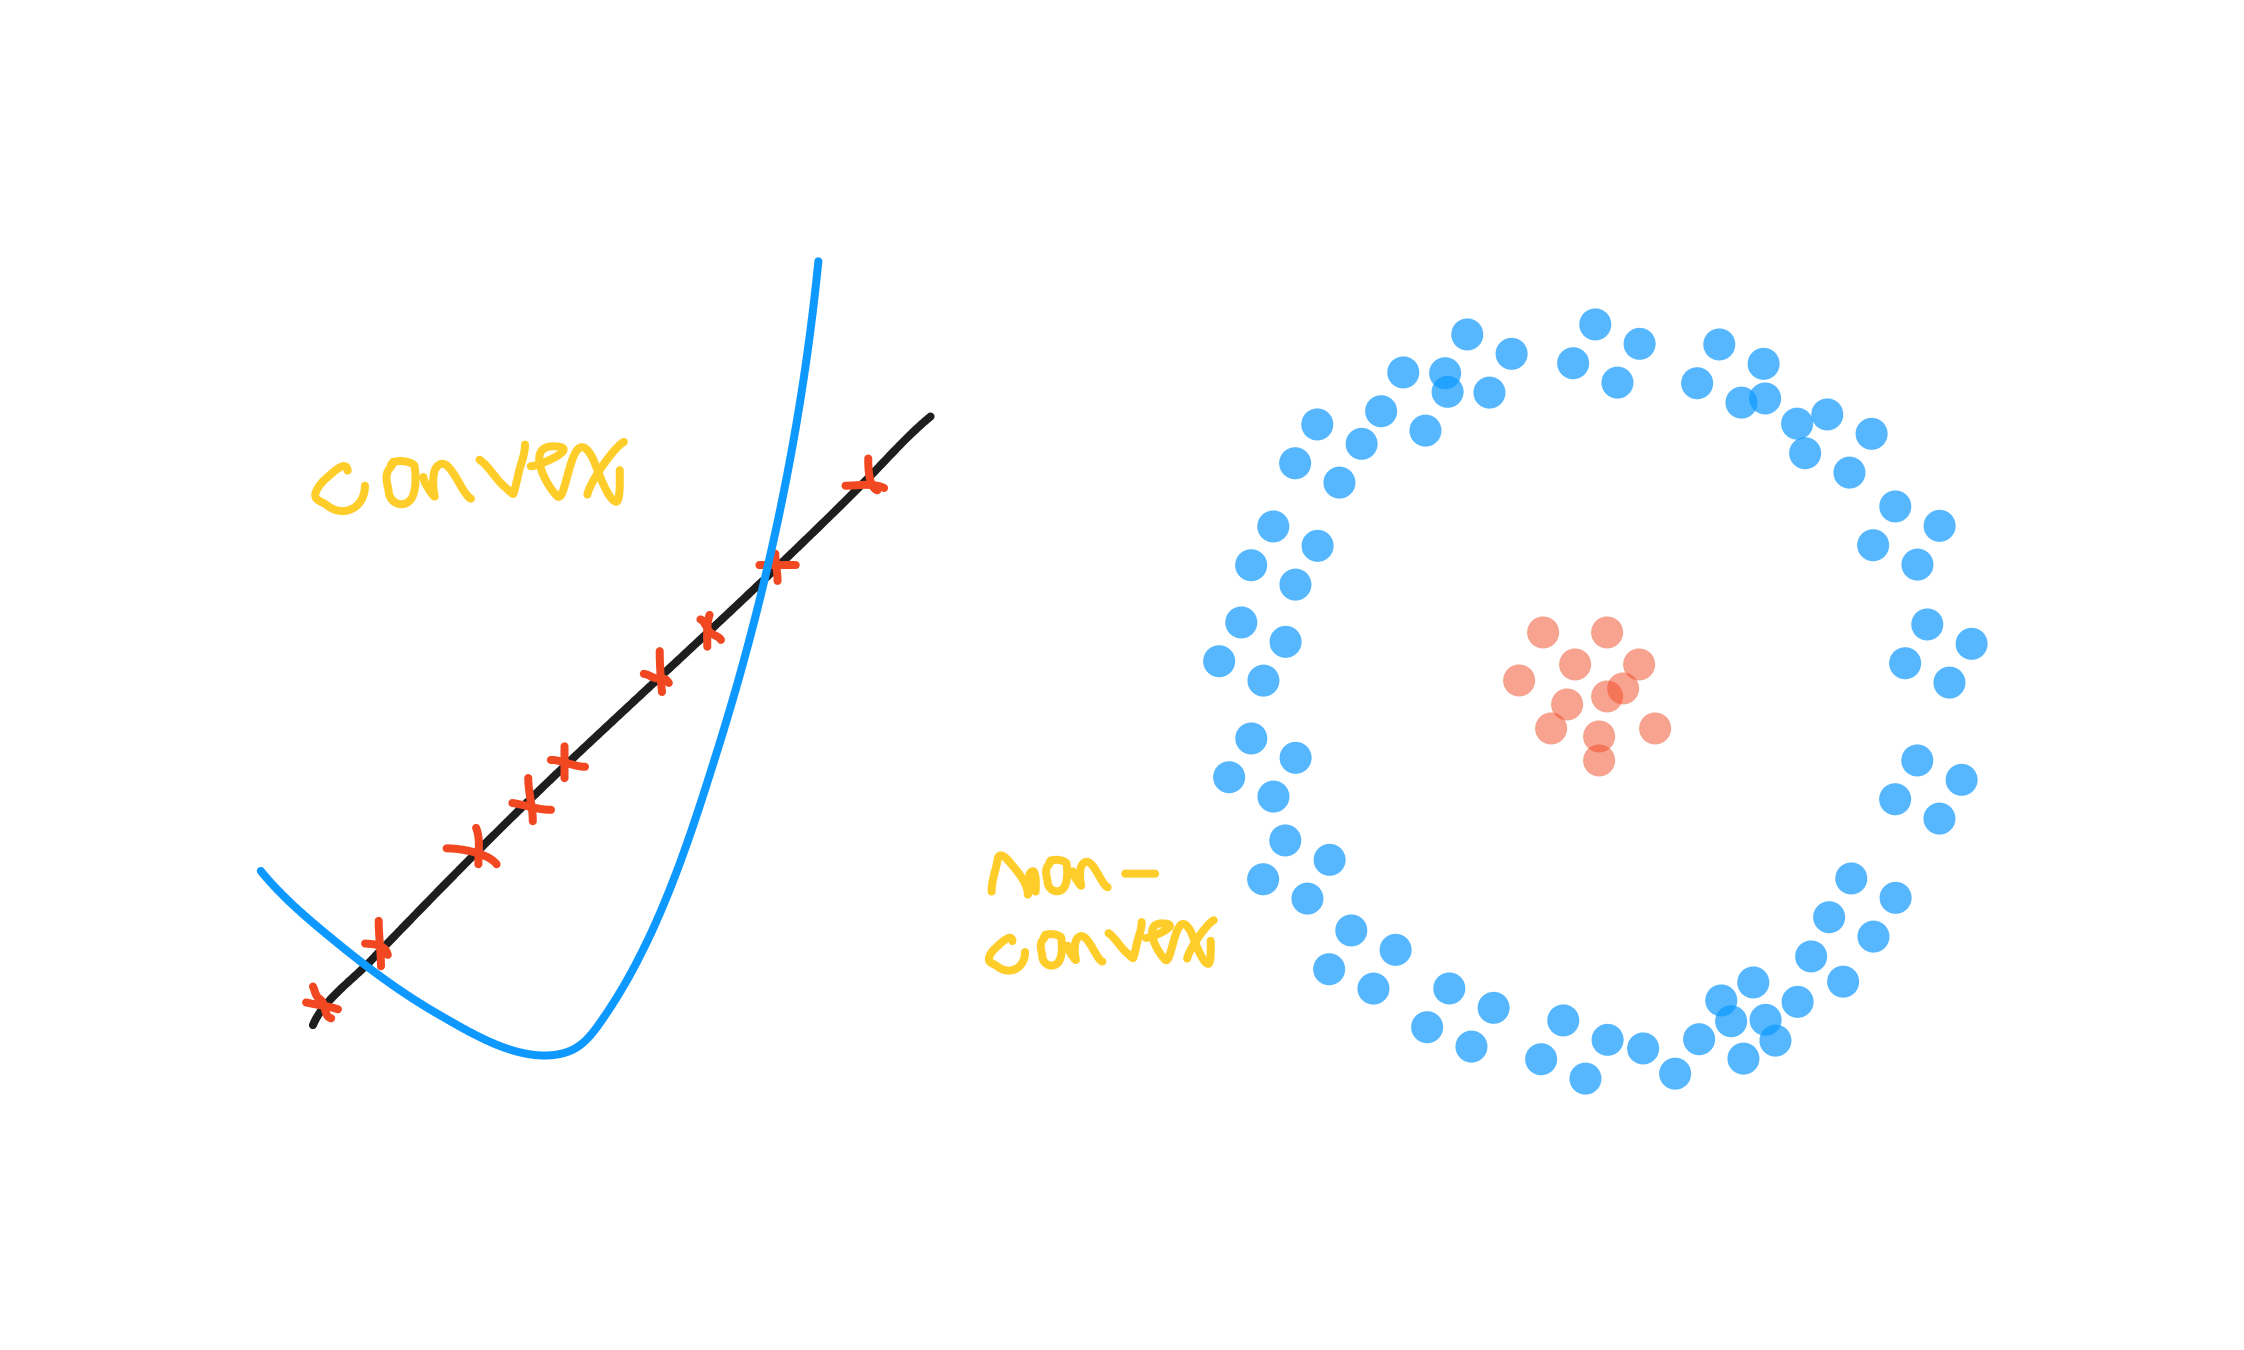 convex
non-
convex